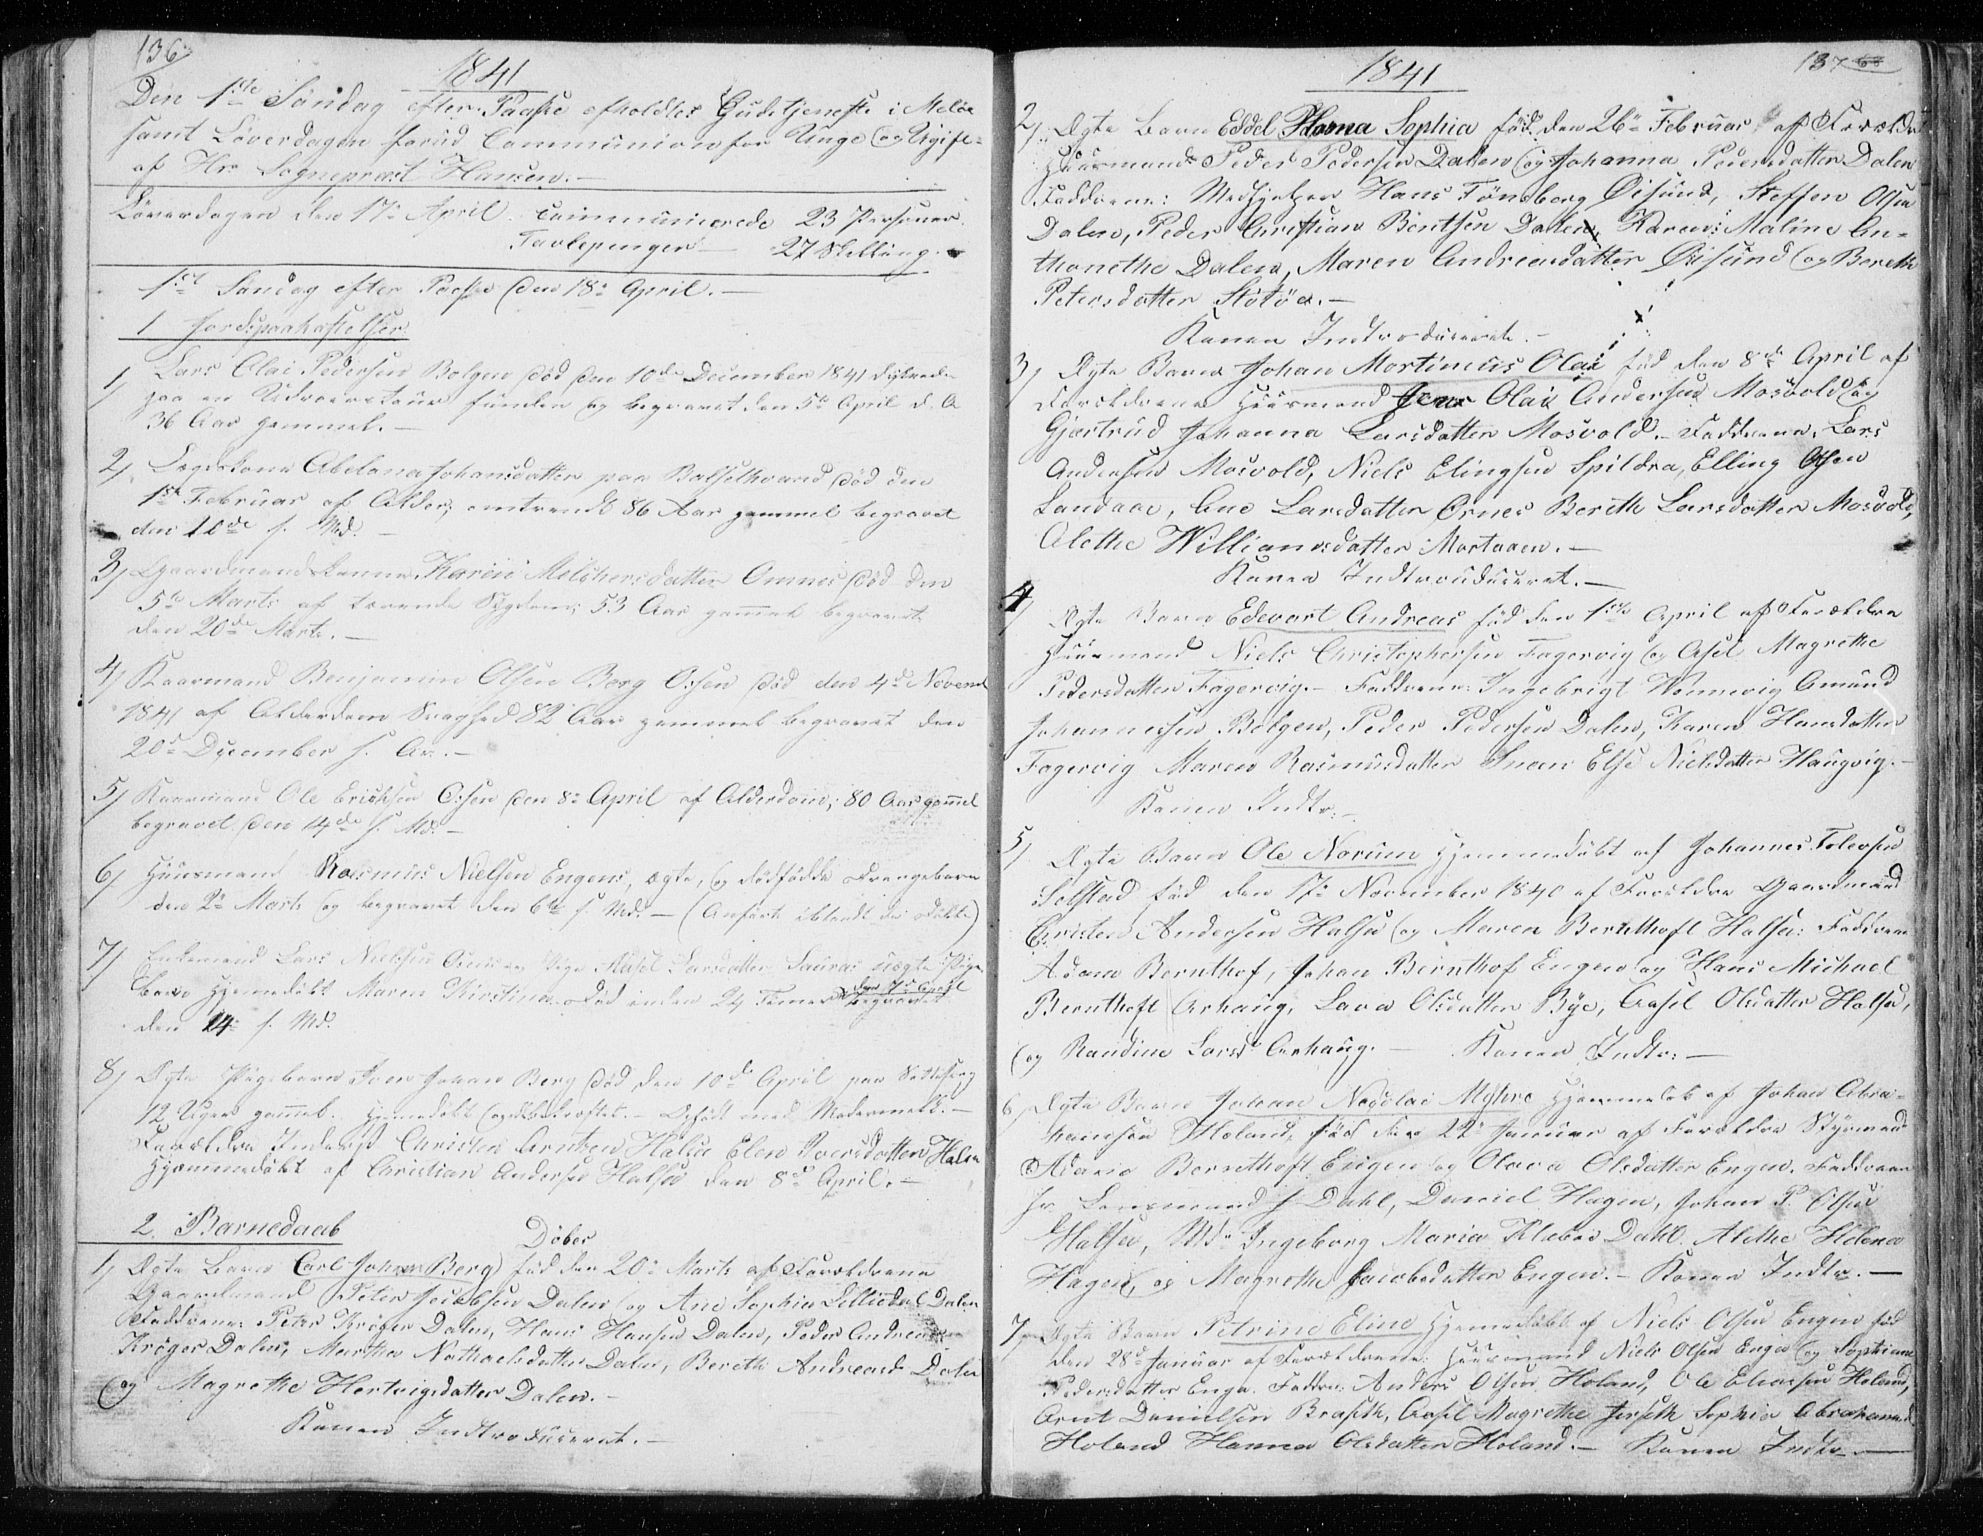 136
1841
Den 1ste Söndag efter Paaske afholdtes Gudstjeneste i Meløe
samt Løverdagen forud Communion for Unge og Ugift-
af Hr Sognepræst Hansen.-
Løverdagen den 17de April communicerede 23 Personer.
Tavlepenger - 27 Skilling.
1ste Söndag efter Paaske den 18de April.-
1 Jordspaakastelser
1) Lars Olai Pedersen Bolgen død den 10de December 1841
paa en funden og begravet den 5te April d. A
36 Aar gammel.-
2) Abelona Johansdatter paa død den
1ste Februar af Alder, omtrendt 86 Aar gammel begravet
den 10de s. Md.-
3) Gaardmandskonne Karen Melchersdatter Omnes død den
5te Marts af tærende Sygdom; 53 Aar gammel begravet
den 20de Marts.-
4) Kaarmand Benjamin Olsen Berg død den 4de Novemb
1841 af Alderdoms Svaghed 82 Aar gammel begravet den
20de December s. Ar.-
5) Kaarmand Ole Erichsen den 8de April af Alderdom; 80 Aar gammel
begravet den 14de s. Md.-
6) Huusmand Rasmus Nielsen Engens, ægte, og dødfødde Drengebarn
den 2de Marts og begravet den 6te s. Md.- (Anført iblandt de døbte)
7) Enkemand Lars Nielsen og Pige Larsdatter uægte Pige
barn Hjemmedøbt Maren Kirstina begravet
den 7de April
den 14 s. Md.
8) Ægte Pigebarn Johan Berg død den 10de April paa
12 Uger gammel. Hjemmedøbt
Forældre Christen Arntzen Halsa Elen Halsa
Hjemmedøbt af Christian Andersen Halsa den 8de April.-
2. Barnedaab
Döbes
1) Ægte Barn Carl Johan Berg född den 20de Marts af Forældrene
Gaardmand Peter Jacobsen Dalen og Ane Sophia Dalen
Faddrene: Peter Krøger Dalen, Hans Hansen Dalen, Peder Andreas
Krøger Dalen, Martha Nathaelsdatter Dalen, Bereth Andreasd Dalen
og Magrethe Hertvigsdatter Dalen.-
Konen Indtroduceret.-
137
1841
2) Ægte Barn Eddel Sophia född den 26de Februar af Forældr
Huusmand Peder Pedersen Dalen og Johanna Pedersdatter Dalen
Faddrene: Medhjelper Hans Tønsberg Øisund, Steffen Olsen
Dalen, Peder Christian Bentsen Dalen, Karen Maline An-
thonethe Dalen, Maren Andreasdatter Øisund og Berethe
Petersdatter Støtøe.-
Konen Indtroduceret.-
3) Ægte Barn Johan Mortinus Olai född den 8de April af
Forældrene Huusmand Jens Olai Andersen Mosvold og
Gjertrud Johanna Larsdatter Mosvold.- Faddrene, Lars
Andersen Mosvold, Niels Elingsen Spildra, Elling Olsen
Sandaae, Ane Larsdatter Ornes Berethe Larsdatter Mosvold,
Alethe Williamsdatter Mortaaen.-
Konen Indtrouduceret.-
4) Ægte Barn Edevart Andreas född den 1ste April af Forældre
Huusmand Niels Christophersen Fagervig og Asel Magrethe
Pedersdatter Fagervig.- Faddrene: Ingebrigt Amund
Johannessen Bolgen, Peder Pedersen Dalen, Karen Hansdatter
Fagervig Maren Rasmusdatter Else Nielsdatter Haugvig.-
Konen Indtr.-
5) Ægte Barn Ole Norum Hjemmedøbt af Johannes Tolevsen
Selstad född den 17de November 1840 af Forældre Gaardmand
Christen Andersen Halsa og Maren Bernthoft Halsa: Faddrene
Adam Bernthof, Johan Bernthof Engen og Hans Michael
Bernthoft Arhaug, Lava Olsdatter Bye, Aasel Olsdatter Halsa,
og Randine Larsd. Arhaug.- Konen Indtr:-
6) Ægte Barn Johan Nicolai Myhre Hjemmedøb af Johan Abra-
hamsen Holand, född den 22de Januar af Forældre Styrmand
Adam Bernthoft Engen og Olava Olsdatter Engen. Faddrene
Hr. Lensmand J Dahl, Daniel Hagen, Johan P. Olsen
Halsa, Md. Ingeborg Maria Klæboe Dahl. Alethe Helena
Hagen, og Magrethe Jacobsdatter Engen.- Konen Indtr.-
7) Ægte Barn Petrine Eline Hjemmedøbt af Niels Olsen Engen född
den 28de Januar af Forældrene: Huusmand Niels Olsen Engen og Sophiane
Pedersdatter Enge. Faddre: Anders Olsen Holand, Ole Eliassen Holand,
Arnt Danielsen Braseth, Aasel Magrethe Forseth Sophia Abrahamsd
Holand Hanna Olsdatter Holand.- Konen Indtr-